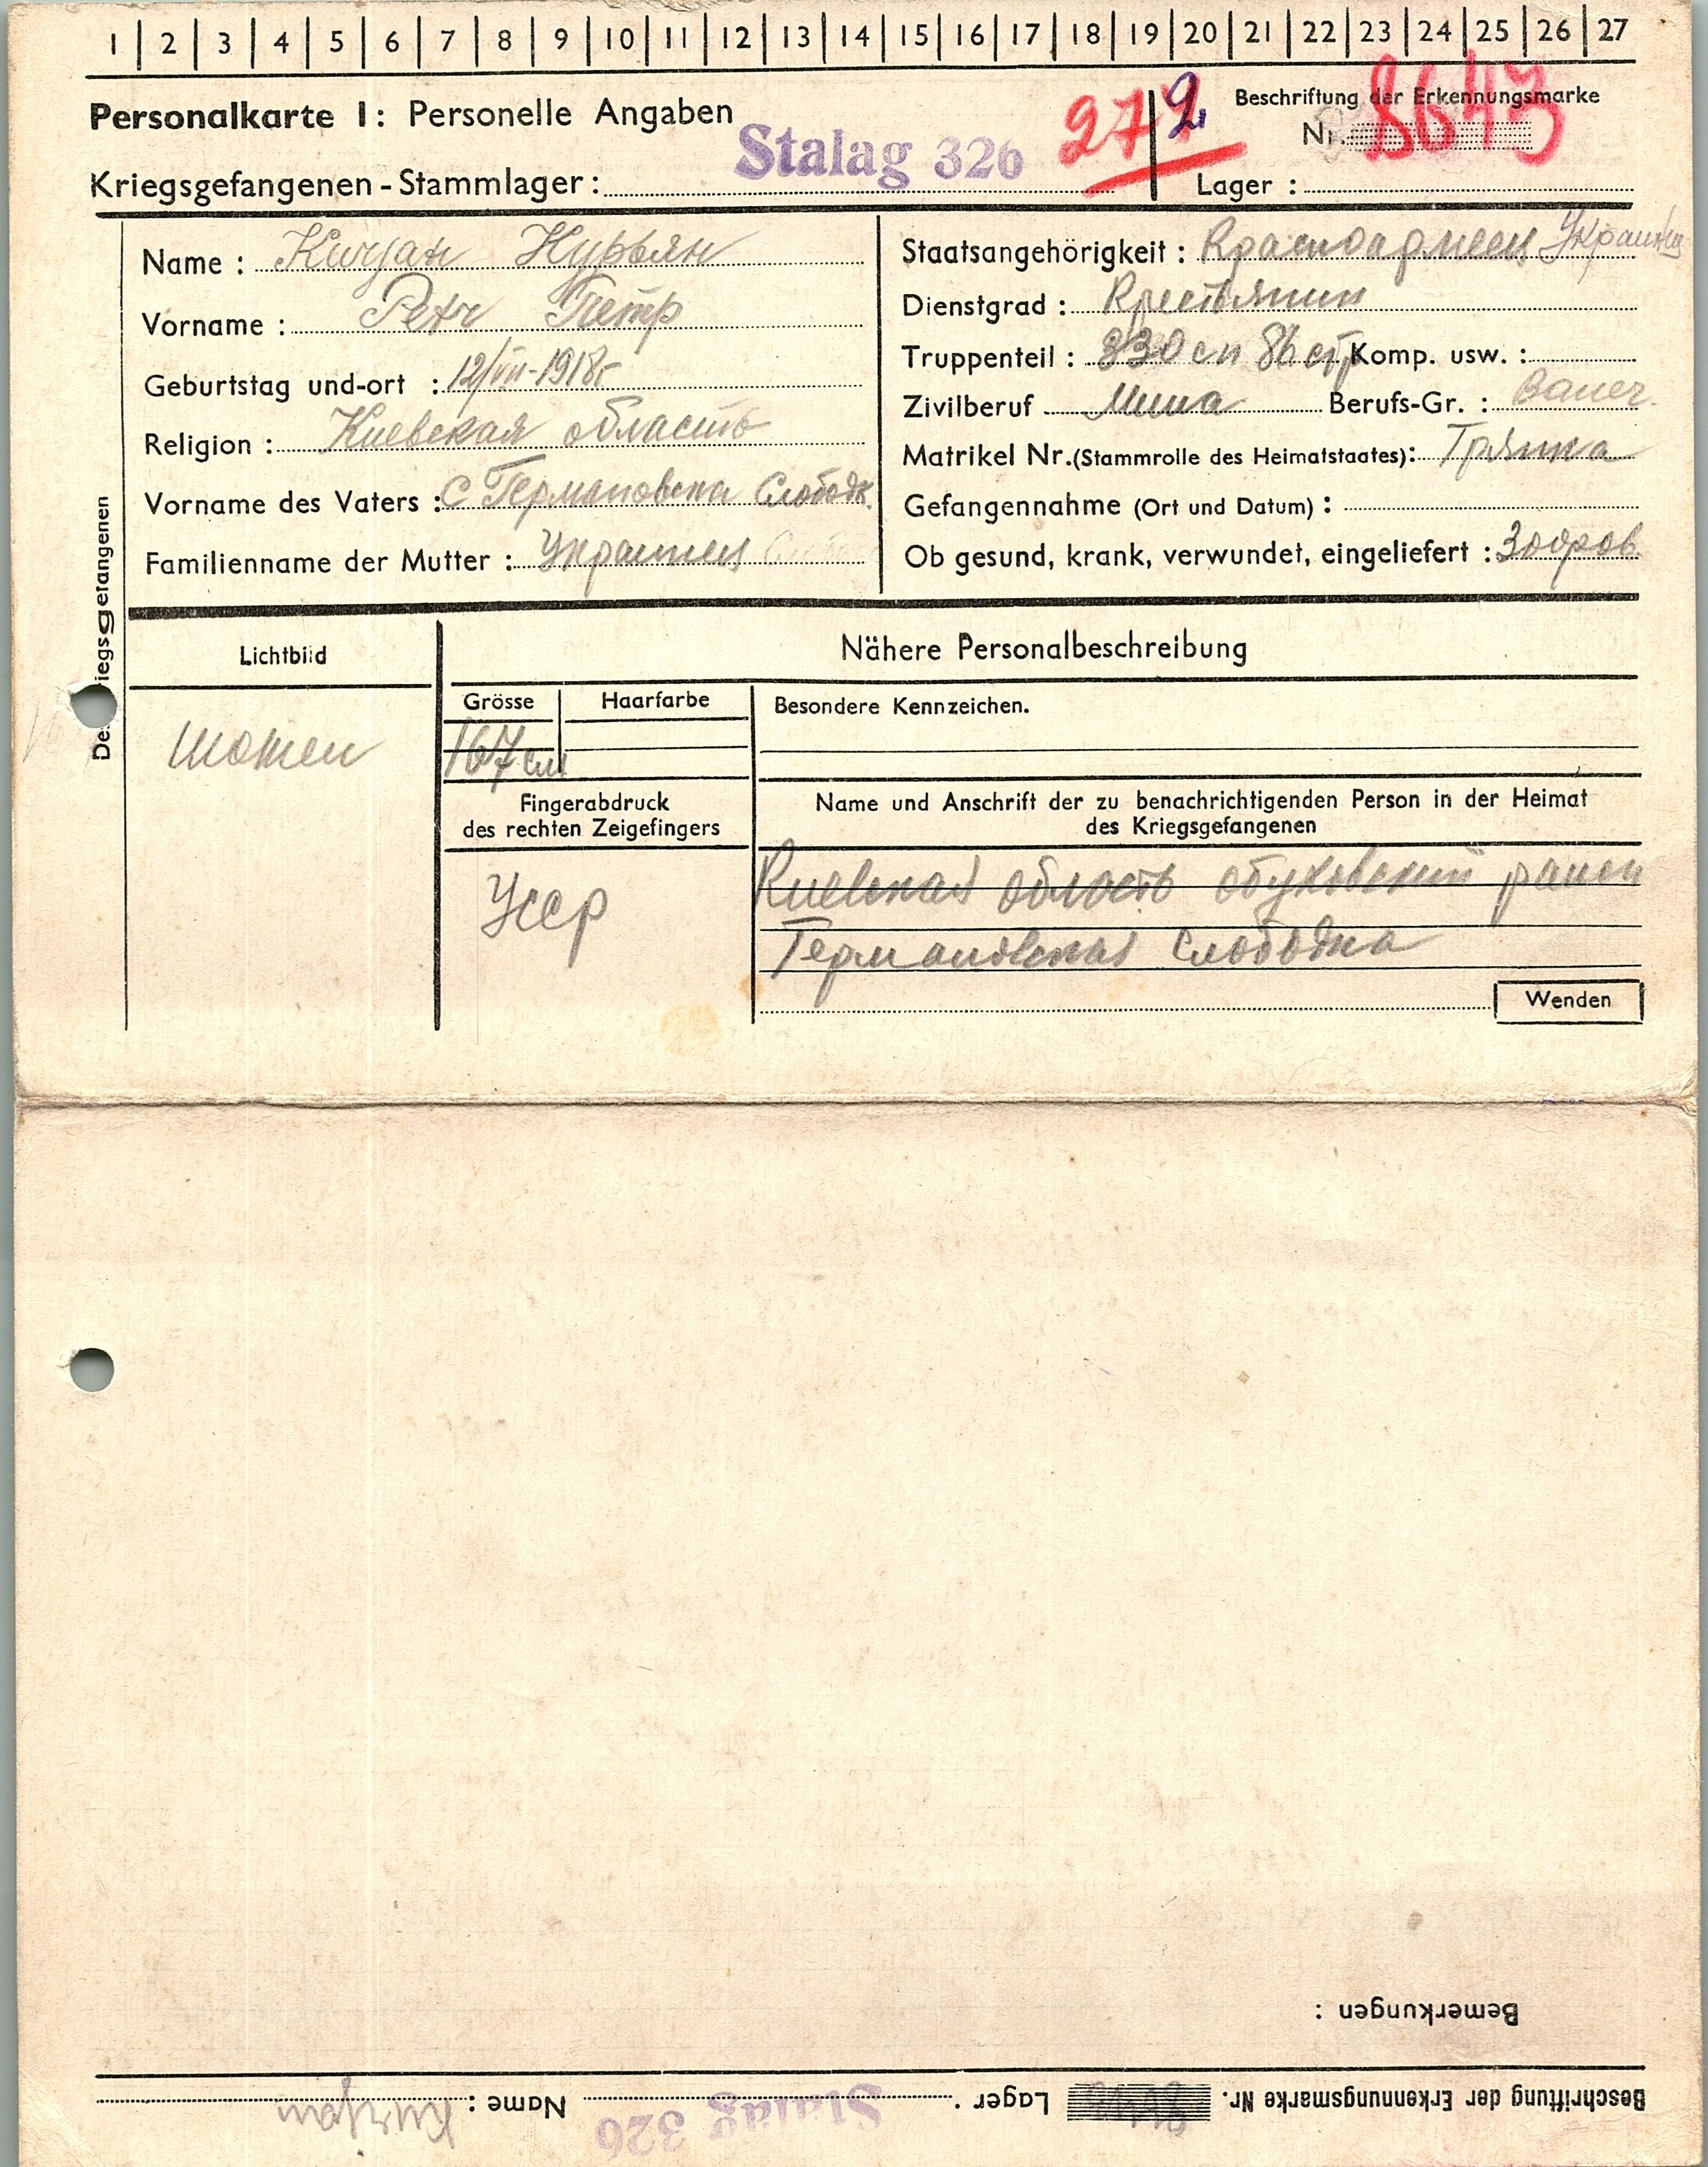 1 2 3 4 5 6 7 8 9 10 11 12 13 14 15 16 17 18 19 20 21 22 23 24 25 26 27
Personalkarte I: Personelle Angaben
Beschriftung der Erkennungsmarke
Nr. 8643
Stalag 326
Kriegsgefangenen-Stammlager:
Lager:
Name: Kurjan Курьян
Vorname: Petr Петр
Geburtstag und-ort: 12/VII-1918г
Religion: Киевская область
Vorname des Vaters: с Германовска Слободк
Familienname der Mutter: Украинец
Staatsangehörigkeit: Красноармеец
Dienstgrad: Крестьянин
Truppenteil: 330 сп 86 сд Komp. usw.:
Zivilberuf Миша Berufs-Gr.: Bauer
Matrikel Nr. (Stammrolle des Heimatstaates):
Gefangennahme (Ort und Datum):
Ob gesund, krank, verwundet, eingeliefert: Здоров
Des Kriegsgefangenen
Lichtbild
Nähere Personalbeschreibung
Grösse
Haarfarbe
Besondere Kennzeichen.
167 см
Fingerabdruck
des rechten Zeigefingers
Name und Anschrift der zu benachrichtigenden Person in der Heimat
des Kriegsgefangenen
Киевская область обуховский раион
Германовская Слободка
Wenden
Bemerkungen:
Beschriftung der Erkennungsmarke Nr. Lager: Stalag 326 Name: Kurjan